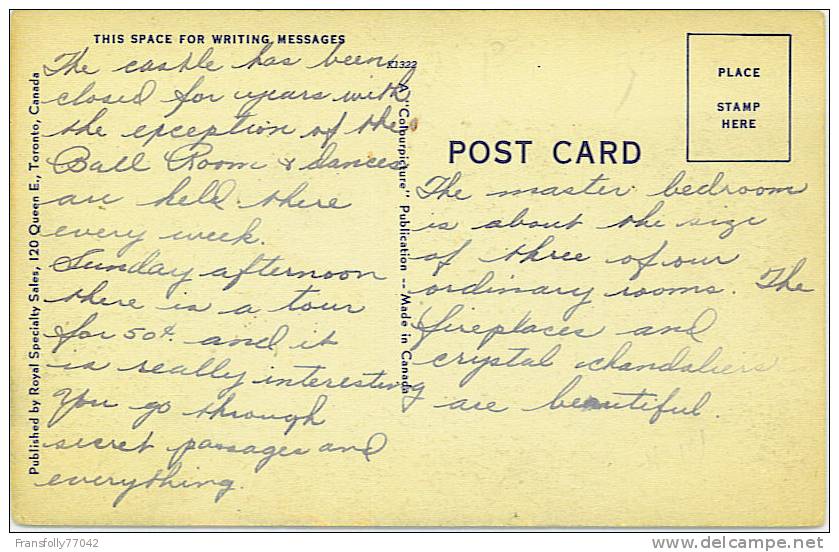 THIS SPACE FOR WRITING MESSAGES
The castle has been
closed for years with
the exception of the
Ball Room & dances
are held there
every week.
Sunday afternoon
there is a tour
for 50¢ and it
is really interesting
You go through
secret passages and
everything.
Published by Royal Specialty Sales, 120 Queen E., Toronto, Canada
K1322
A "Colourpicture" Publication -- Made in Canada
POST CARD
PLACE
STAMP
HERE
The master bedroom
is about the size
of three of our
ordinary rooms. The
fireplaces and
crystal chandaliers
are beautiful.
Fransfolly77042
www.delcampe.net